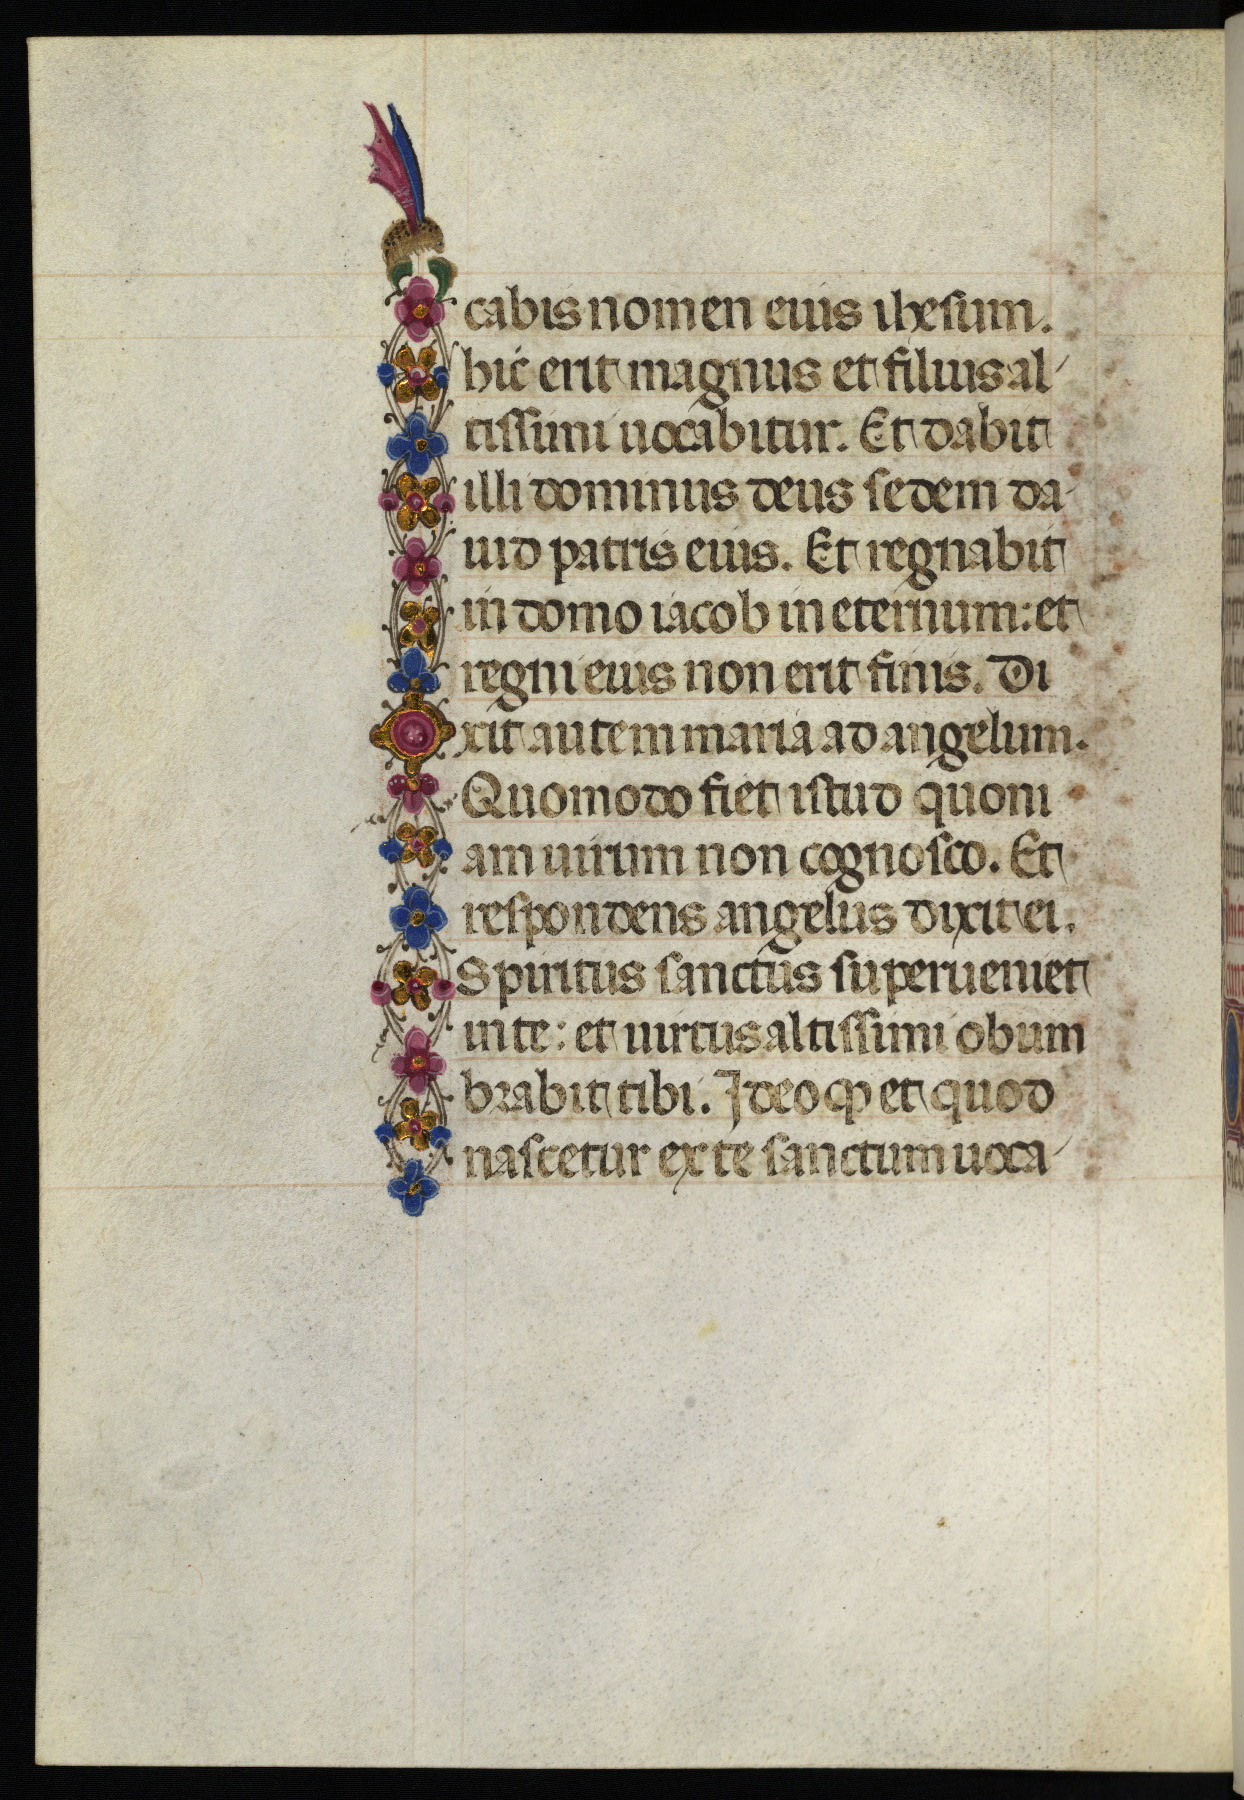 cabis nomen eius ihesum.
hic erit magnus et filius al
tissimi uocabitur. Et dabit
illi dominus deus sedem da
uid patris eius. Et regnabit
in domo iacob in eternum: et
regni eius non erit finis. Di
xit autem maria ad angelum.
Quomodo fiet istud quoni
am uirum non cognosco. Et
respondens angelus dixit ei.
Spiritus sanctus superueniet
in te: et uirtus altissimi obum
brabit tibi. Ideoqꝫ et quod
nascetur ex te sanctum uoca